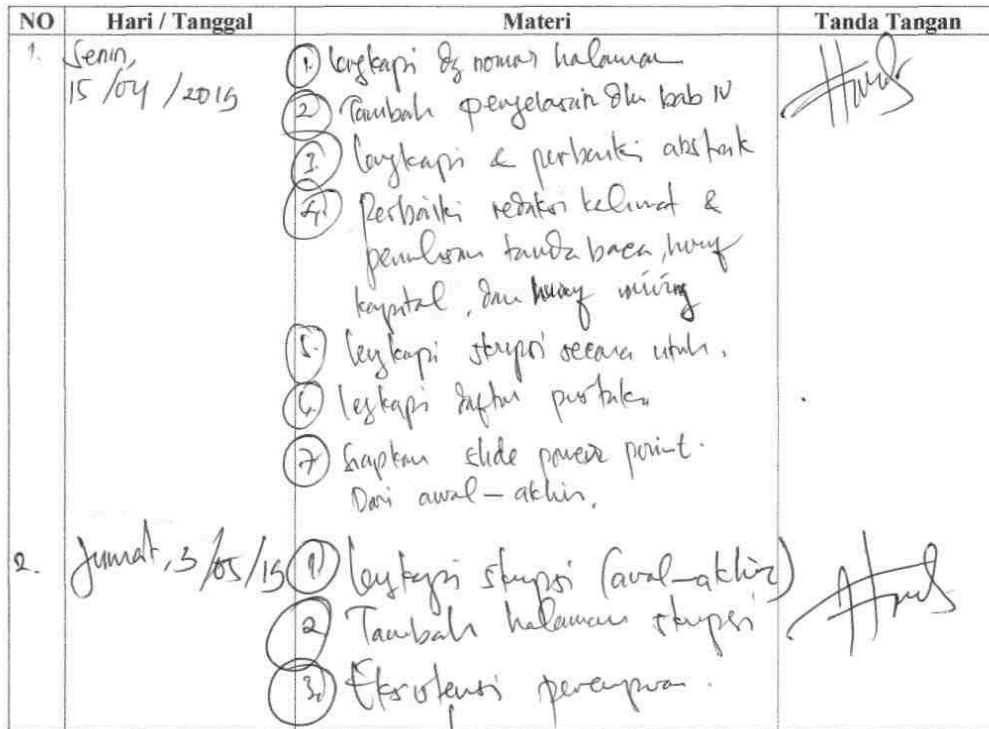 NO Hari / Tanggal Materi Tanda Tangan
1. Senin, 15/04/2019
1. lengkapi dg nomor halaman
2 Tambah penjelasan dlm bab IV
3. lengkapi & perbaiki abstrak
4. Perbaiki redaksi kalimat &
penulisan tanda baca, huruf
kapital, dan huruf miring
5. lengkapi skripsi secara utuh.
6. lengkapi daftar pustaka
7 Siapkan slide power point.
Dari awal - akhir.
2. Jumat, 3/05/19
1) lengkapi skripsi (awal-akhir)
2 Tambah halaman skripsi
3. Eksistensi perempuan.